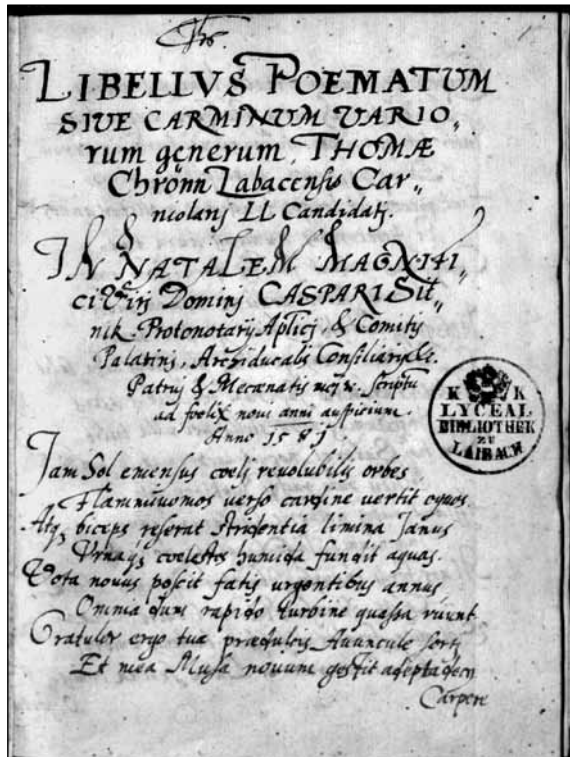 LIBELLVS POEMATUM
SIVE CARMINUM VARIO„
rum generum, THOMÆ
Chrönn Labacensis Car„
niolanj LL Candidatj.
IN NATALEM MAGNIFI„
ci Virj Dominj CASPARI Sit„
nik Protonotarij Aplicj, & Comitis
Palatinj, Archiducalis Consiliarij &c.
Patruj & Mecænatis mej &c. Scriptū
ad fœlix novi anni auspicium.
Anno 1581
K K
LYCEAL
BIBLIOTHEK
ZU
LAIBACH
Jam Sol emensus cœlj revolubilis orbes
Flammivomos verso cardine vertit equos
Atq, biceps reserat stridentia limina Janus
Vrnaq, cœlestes humida fundit aquas.
Vota novus poscit fatis urgentibus annus,
Omnia dum rapido turbine quassa ruunt
Gratulor ergo tuæ prædulcis Avuncule sortj
Et mea Musa novum gestit adepta decus
Carpere